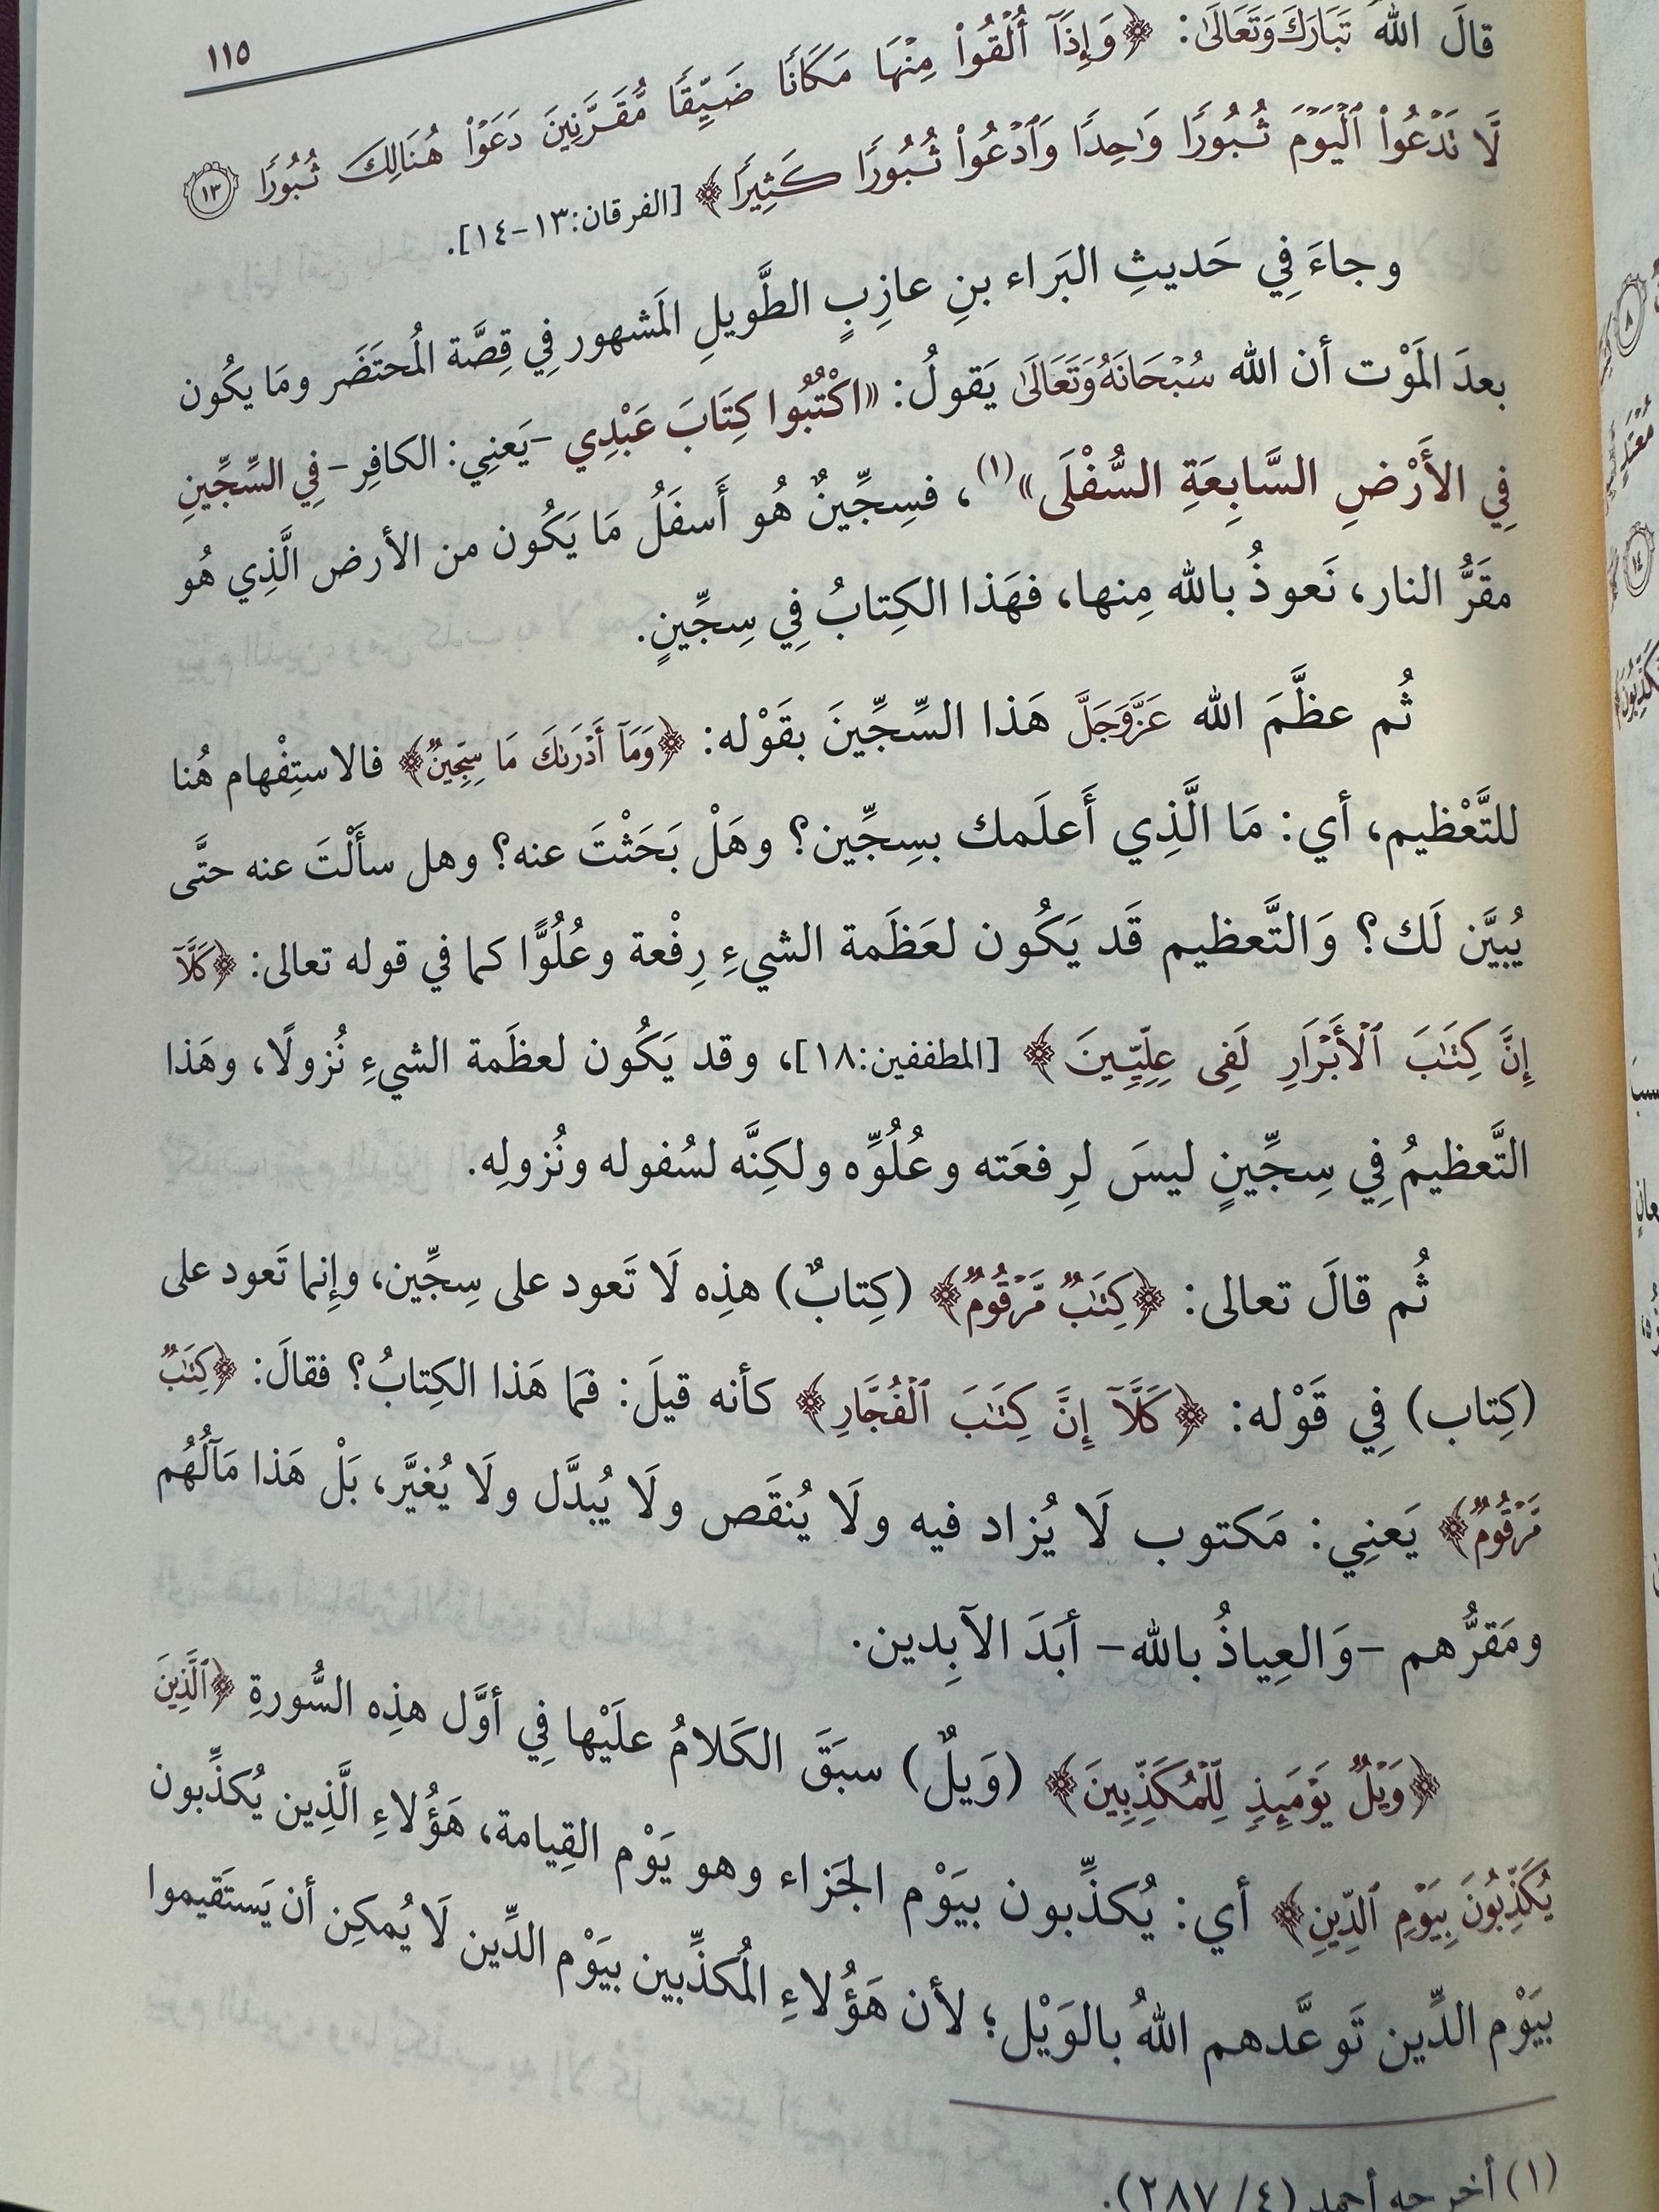 ١١٥
قالَ الله تَبَارَكَ وَتَعَالَى: ﴿وَإِذَآ أُلْقُوا۟ مِنْهَا مَكَانًا ضَيِّقًا مُّقَرَّنِينَ دَعَوْا۟ هُنَالِكَ ثُبُورًا ١٣
لَّا تَدْعُوا۟ ٱلْيَوْمَ ثُبُورًا وَٰحِدًا وَٱدْعُوا۟ ثُبُورًا كَثِيرًا﴾ [الفرقان:١٣-١٤].
وجاءَ فِي حَديثِ البَراء بنِ عازِبٍ الطَّويلِ المَشهور فِي قِصَّة المُحتَضَر ومَا يكُون
بعدَ المَوْت أن الله سُبْحَانَهُ وَتَعَالَى يَقولُ: «اكْتُبُوا كِتَابَ عَبْدِي -يَعنِي: الكافِر- فِي السِّجِّينِ
فِي الأَرْضِ السَّابِعَةِ السُّفْلَى»(١)، فسِجِّينٌ هُو أَسفَلُ مَا يَكُون من الأرض الَّذِي هُو
مقَرُّ النار، نَعوذُ بالله مِنها، فهَذا الكِتابُ فِي سِجِّينٍ.
ثُم عظَّمَ الله عَزَّوَجَلَّ هَذا السِّجِّينَ بقَوْله: ﴿وَمَآ أَدْرَىٰكَ مَا سِجِّينٌ﴾ فالاستِفْهام هُنا
للتَّعْظيم، أي: مَا الَّذِي أَعلَمك بسِجِّين؟ وهَلْ بَحَثْتَ عنه؟ وهل سأَلْتَ عنه حتَّى
يُبيَّن لَك؟ وَالتَّعظيم قَد يَكُون لعَظَمة الشيءِ رِفْعة وعُلُوًّا كما في قوله تعالى: ﴿كَلَّآ
إِنَّ كِتَٰبَ ٱلْأَبْرَارِ لَفِى عِلِّيِّينَ﴾ [المطففين:١٨]، وقد يَكُون لعظَمة الشيءِ نُزولًا، وهَذا
التَّعظيمُ فِي سِجِّينٍ ليسَ لرِفعَته وعُلُوِّه ولكِنَّه لسُفوله ونُزولِه.
ثُم قالَ تعالى: ﴿كِتَٰبٌ مَّرْقُومٌ﴾ (كِتابٌ) هذِه لَا تَعود على سِجِّين، وإِنما تَعود على
(كِتاب) فِي قَوْله: ﴿كَلَّآ إِنَّ كِتَٰبَ ٱلْفُجَّارِ﴾ كأنه قيلَ: فمَا هَذا الكِتابُ؟ فقالَ: ﴿كِتَٰبٌ
مَّرْقُومٌ﴾ يَعنِي: مَكتوب لَا يُزاد فيه ولَا يُنقَص ولَا يُبدَّل ولَا يُغيَّر، بَلْ هَذا مَآلُهُم
ومَقرُّهم -وَالعِياذُ بالله- أبَدَ الآبِدين.
﴿وَيْلٌ يَوْمَئِذٍ لِّلْمُكَذِّبِينَ﴾ (وَيلٌ) سبَقَ الكَلامُ علَيْها فِي أوَّل هذِه السُّورةِ ﴿ٱلَّذِينَ
يُكَذِّبُونَ بِيَوْمِ ٱلدِّينِ﴾ أي: يُكذِّبون بيَوْم الجَزاء وهو يَوْم القِيامة، هَؤُلاءِ الَّذِين يُكذِّبون
بيَوْم الدِّين تَوعَّدهم اللهُ بالوَيْل؛ لأن هَؤُلاءِ المُكذِّبين بيَوْم الدِّين لَا يُمكِن أن يَستَقيموا
(١) أخرجه أحمد (٤/ ٢٨٧).